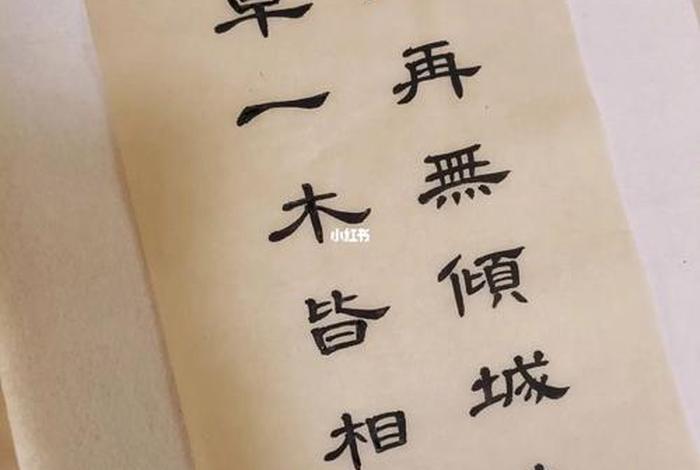 再無傾城
草一木皆相
小红书